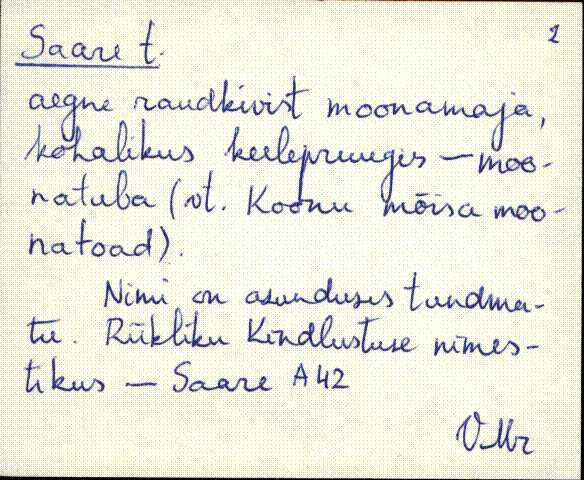 2
Saare t.
aegne raudkivist moonamaja,
kohalikus keelepruugis – moo-
natuba (vt. Koonu mõisa moo-
natoad).
Nimi on asunduses tundma-
tu. Riikliku Kindlustuse nimes-
tikus – Saare A42